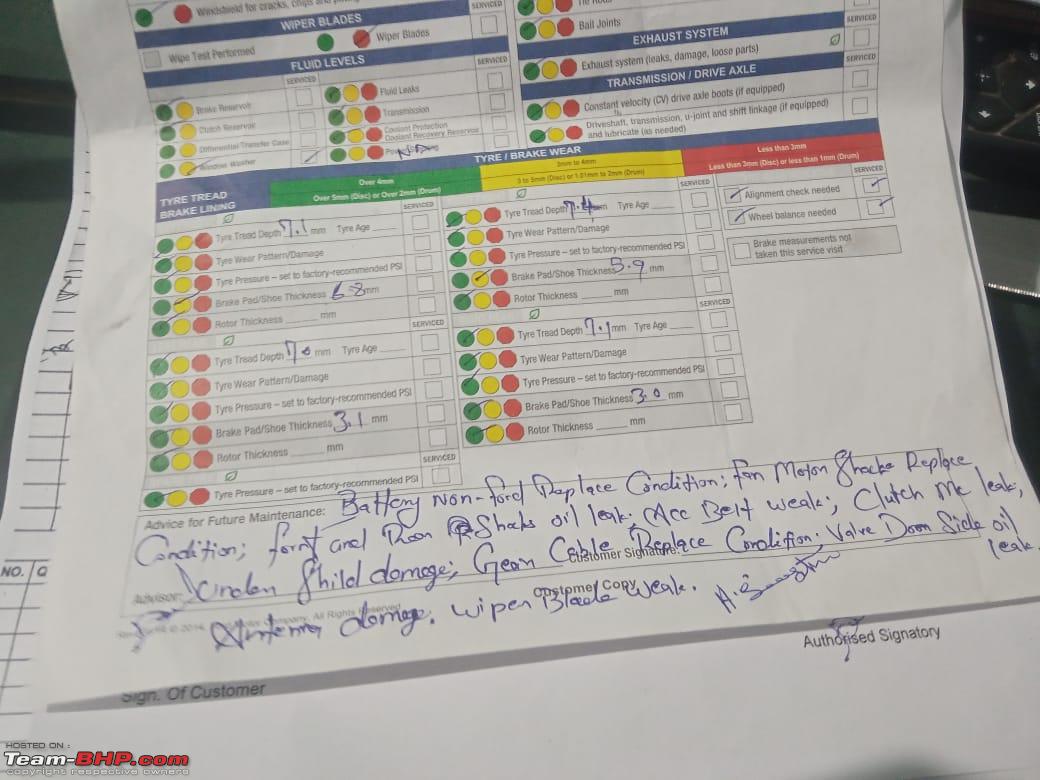 Windshield for cracks, chips and
WIPER BLADES
SERVICED
Wipe Test Performed
Wiper Blades
FLUID LEVELS
SERVICED
SERVICED
Brake Reservoir
Fluid Leaks
Clutch Reservoir
Transmission
Differential/Transfer Case
Coolant Protection
Coolant Recovery Reservoir
Window Washer
Ball Joints
EXHAUST SYSTEM
SERVICED
Exhaust system (leaks, damage, loose parts)
TRANSMISSION / DRIVE AXLE
SERVICED
Constant velocity (CV) drive axle boots (if equipped)
Driveshaft, transmission, u-joint and shift linkage (if equipped)
and lubricate (as needed)
TYRE / BRAKE WEAR
TYRE TREAD
BRAKE LINING
Over 4mm
Over 5mm (Disc) or Over 2mm (Drum)
3mm to 4mm
3 to 5mm (Disc) or 1.01mm to 2mm (Drum)
Less than 3mm
Less than 3mm (Disc) or less than 1mm (Drum)
SERVICED
Tyre Tread Depth 7.1 mm Tyre Age
Tyre Wear Pattern/Damage
Tyre Pressure – set to factory-recommended PSI
Brake Pad/Shoe Thickness 6.8 mm
Rotor Thickness mm
SERVICED
Tyre Tread Depth 7.0 mm Tyre Age
Tyre Wear Pattern/Damage
Tyre Pressure – set to factory-recommended PSI
Brake Pad/Shoe Thickness 3.1 mm
Rotor Thickness mm
SERVICED
Tyre Pressure – set to factory-recommended PSI
SERVICED
Tyre Tread Depth 7.4 mm Tyre Age
Tyre Wear Pattern/Damage
Tyre Pressure – set to factory-recommended PSI
Brake Pad/Shoe Thickness 5.9 mm
Rotor Thickness mm
SERVICED
Tyre Tread Depth 7.1 mm Tyre Age
Tyre Wear Pattern/Damage
Tyre Pressure – set to factory-recommended PSI
Brake Pad/Shoe Thickness 3.0 mm
Rotor Thickness mm
Alignment check needed
Wheel balance needed
Brake measurements not
taken this service visit
Advice for Future Maintenance: Battery Non-ford Replace Condition; fan Motor Replace
Condition; front and Rear Shocks oil leak; Acc Belt weak; Clutch Mc leak;
damage; Gear Cable Replace Condition. Valve Door Side oil
leak
Antenna damage. wiper Blade weak.
Advisor:
Customer Signature:
Customer Copy
All Rights Reserved
Authorised Signatory
Sign. Of Customer
NO. Q
HOSTED ON :
Team-BHP.com
copyright respective owners